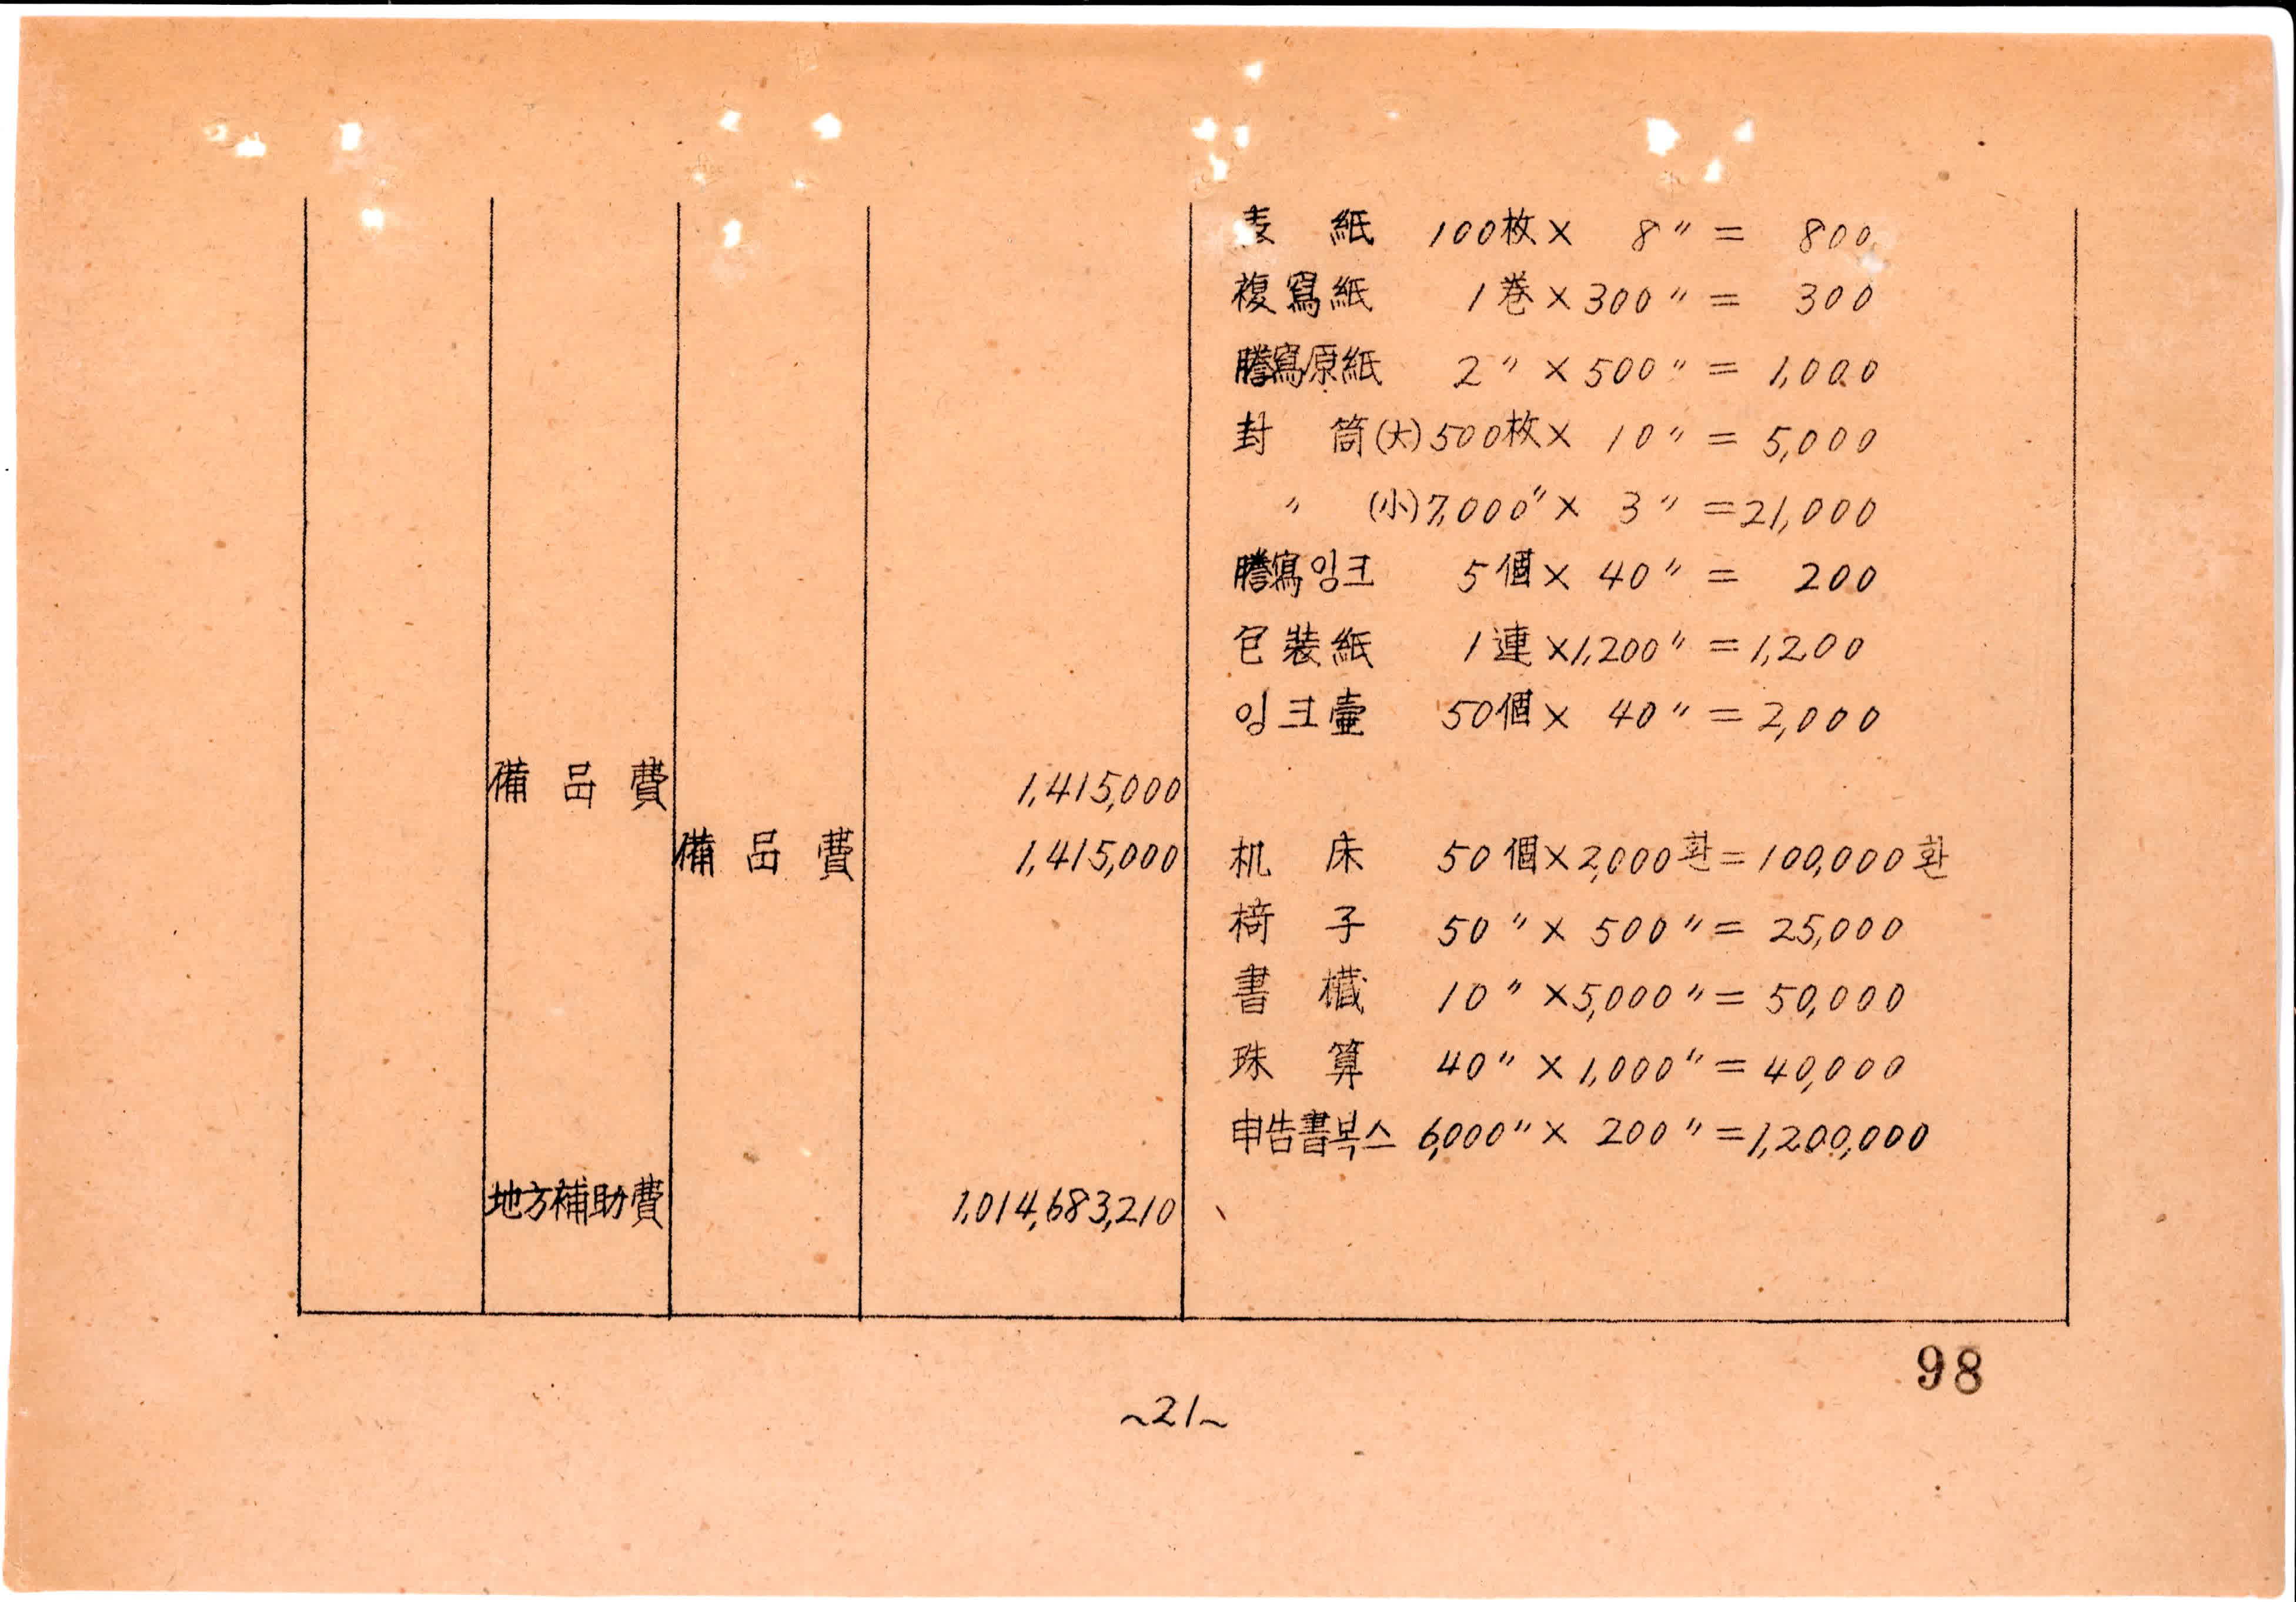 表 紙 100枚× 8〃= 800
複寫紙 1巻×300〃= 300
謄寫原紙 2〃×500〃= 1,000
封 筒(大)500枚× 10〃= 5,000
〃 (小)7,000〃× 3〃=21,000
謄寫잉크 5個× 40〃= 200
包裝紙 1連×1,200〃=1,200
잉크壷 50個× 40〃=2,000
備品費 1,415,000
備品費 1,415,000 机 床 50個×2,000환=100,000환
椅 子 50〃× 500〃= 25,000
書 欌 10〃×5,000〃= 50,000
珠 算 40〃×1,000〃= 40,000
申告書복스 6,000〃× 200〃=1,200,000
地方補助費 1,014,683,210
98
~21~